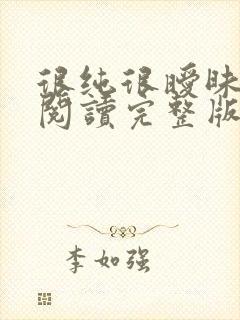 很纯很曖昧
閱讀完整版
李如强